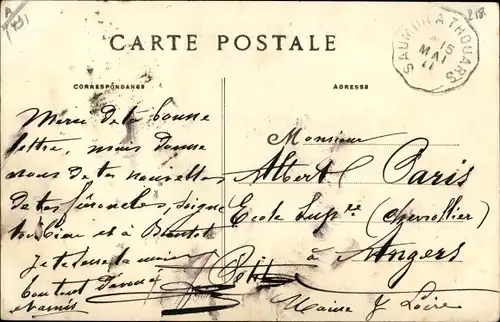 A
(49)
218.
CARTE POSTALE
SAUMUR A THOUARS
15
MAI
11
CORRESPONDANCE
ADRESSE
Merci de ta bonne
lettre, mais donne
nous de tes nouvelles
de tes furoncles, soigne
toi bien et à Bientôt
Je te serre la main
Ton tout dévoué
et ami
Petit
Monsieur
Albert Paris
Ecole Supre (Chevrollier)
à Angers
Maine & Loire